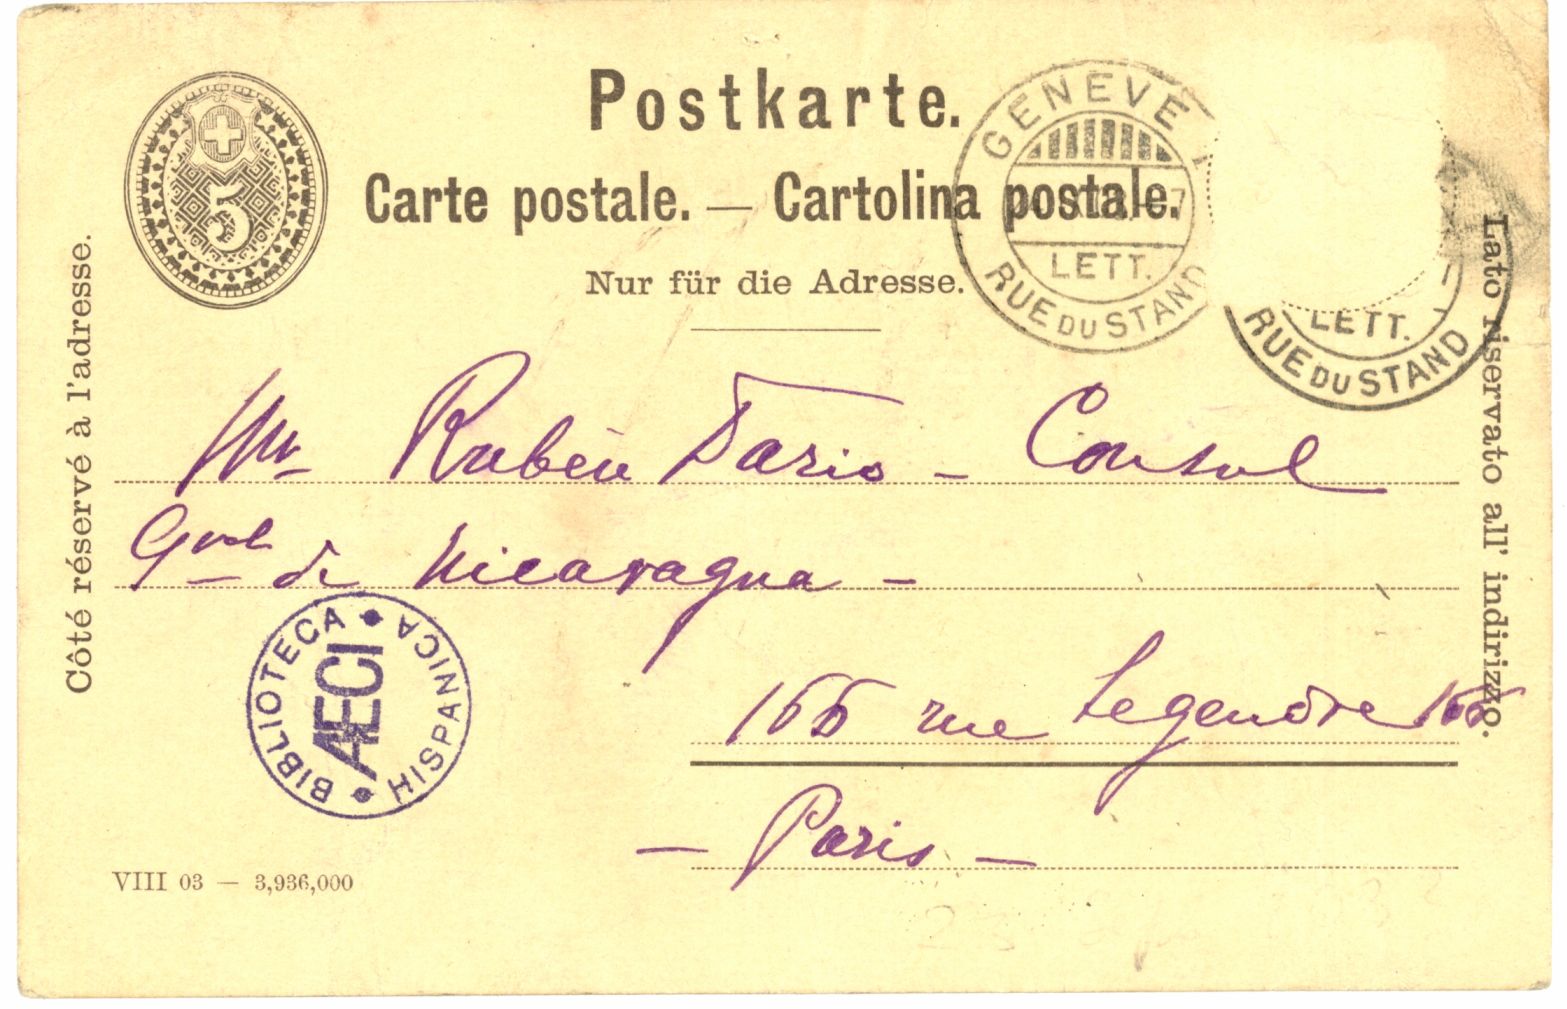 Postkarte.
Carte postale. — Cartolina postale.
Nur für die Adresse.
Côté réservé à l'adresse.
Lato riservato all' indirizzo.
5
GENÈVE 1
LETT.
RUE DU STAND
LETT.
RUE DU STAND
Mr Rubén Dario - Consul
Gral de Nicaragua -
166 rue Legendre 166
- Paris -
BIBLIOTECA HISPANICA
AECI
VIII 03 — 3,936,000